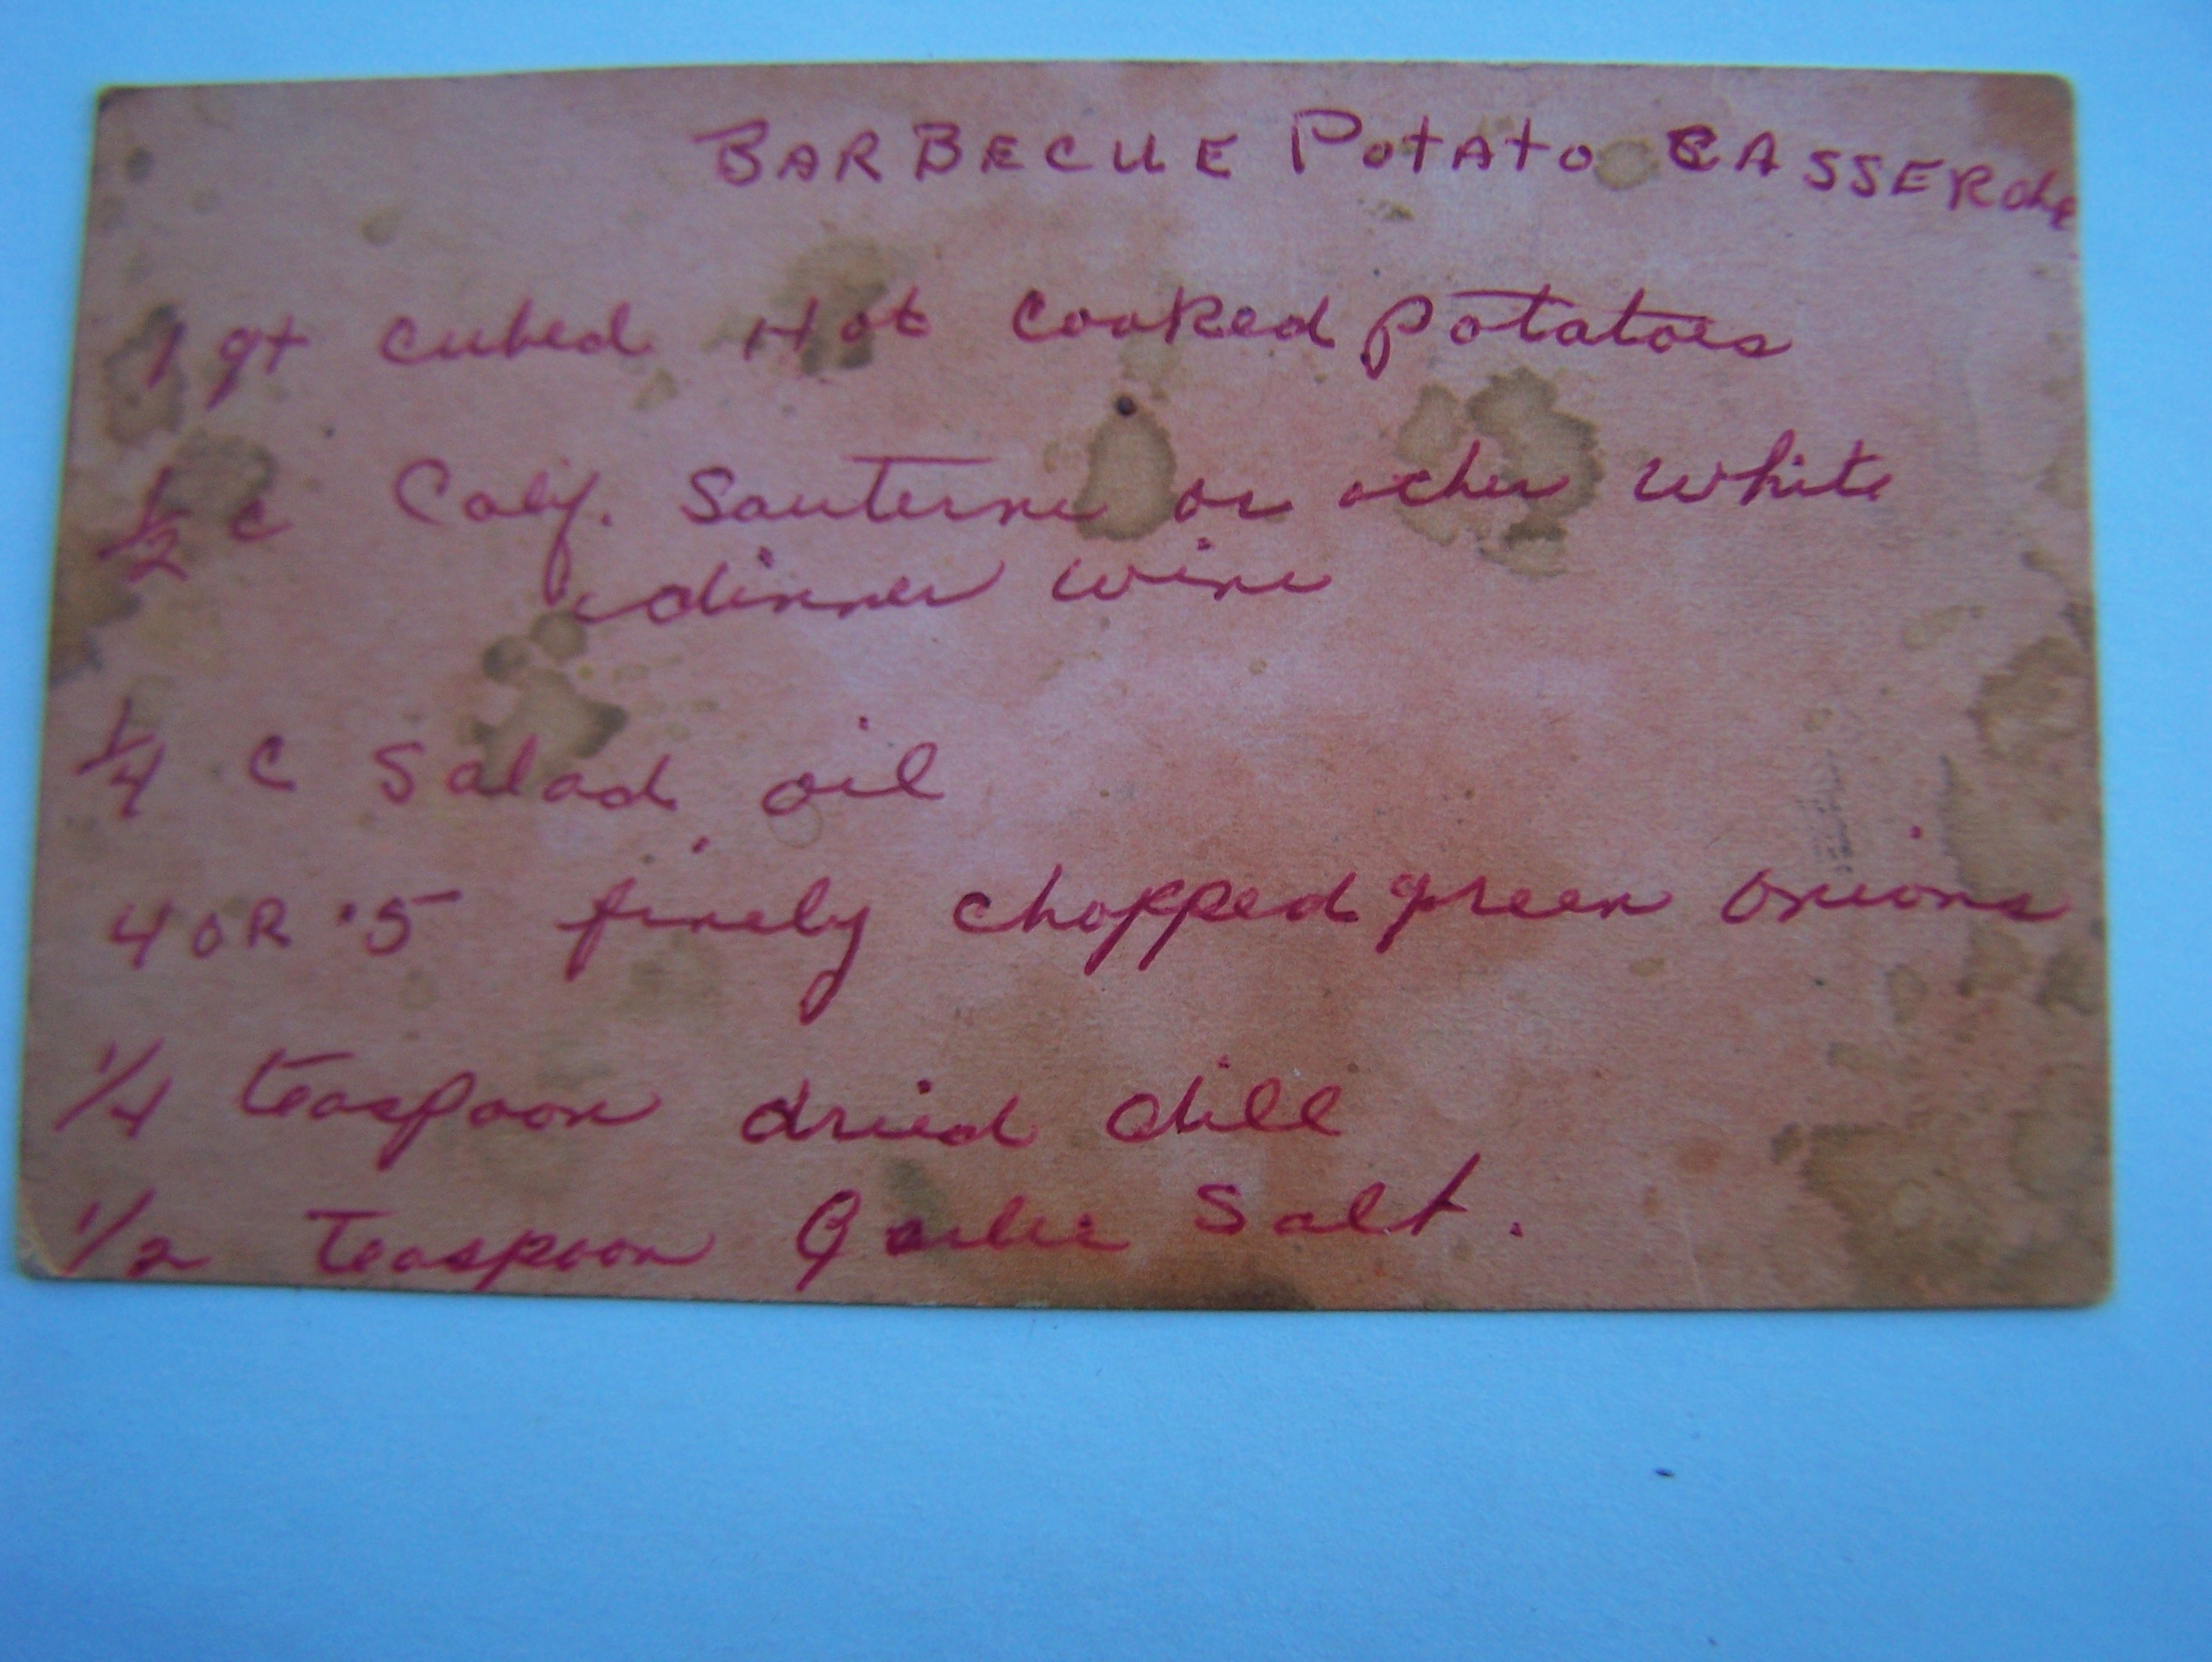 BARBECUE POTATO CASSEROLE
1 qt cubed Hot cooked potatoes
1/2 c Calif. Sauterne or other white
dinner wine
1/4 c Salad oil
4 OR 5 finely chopped green onions
1/4 teaspoon dried dill
1/2 Teaspoon Garlic Salt.